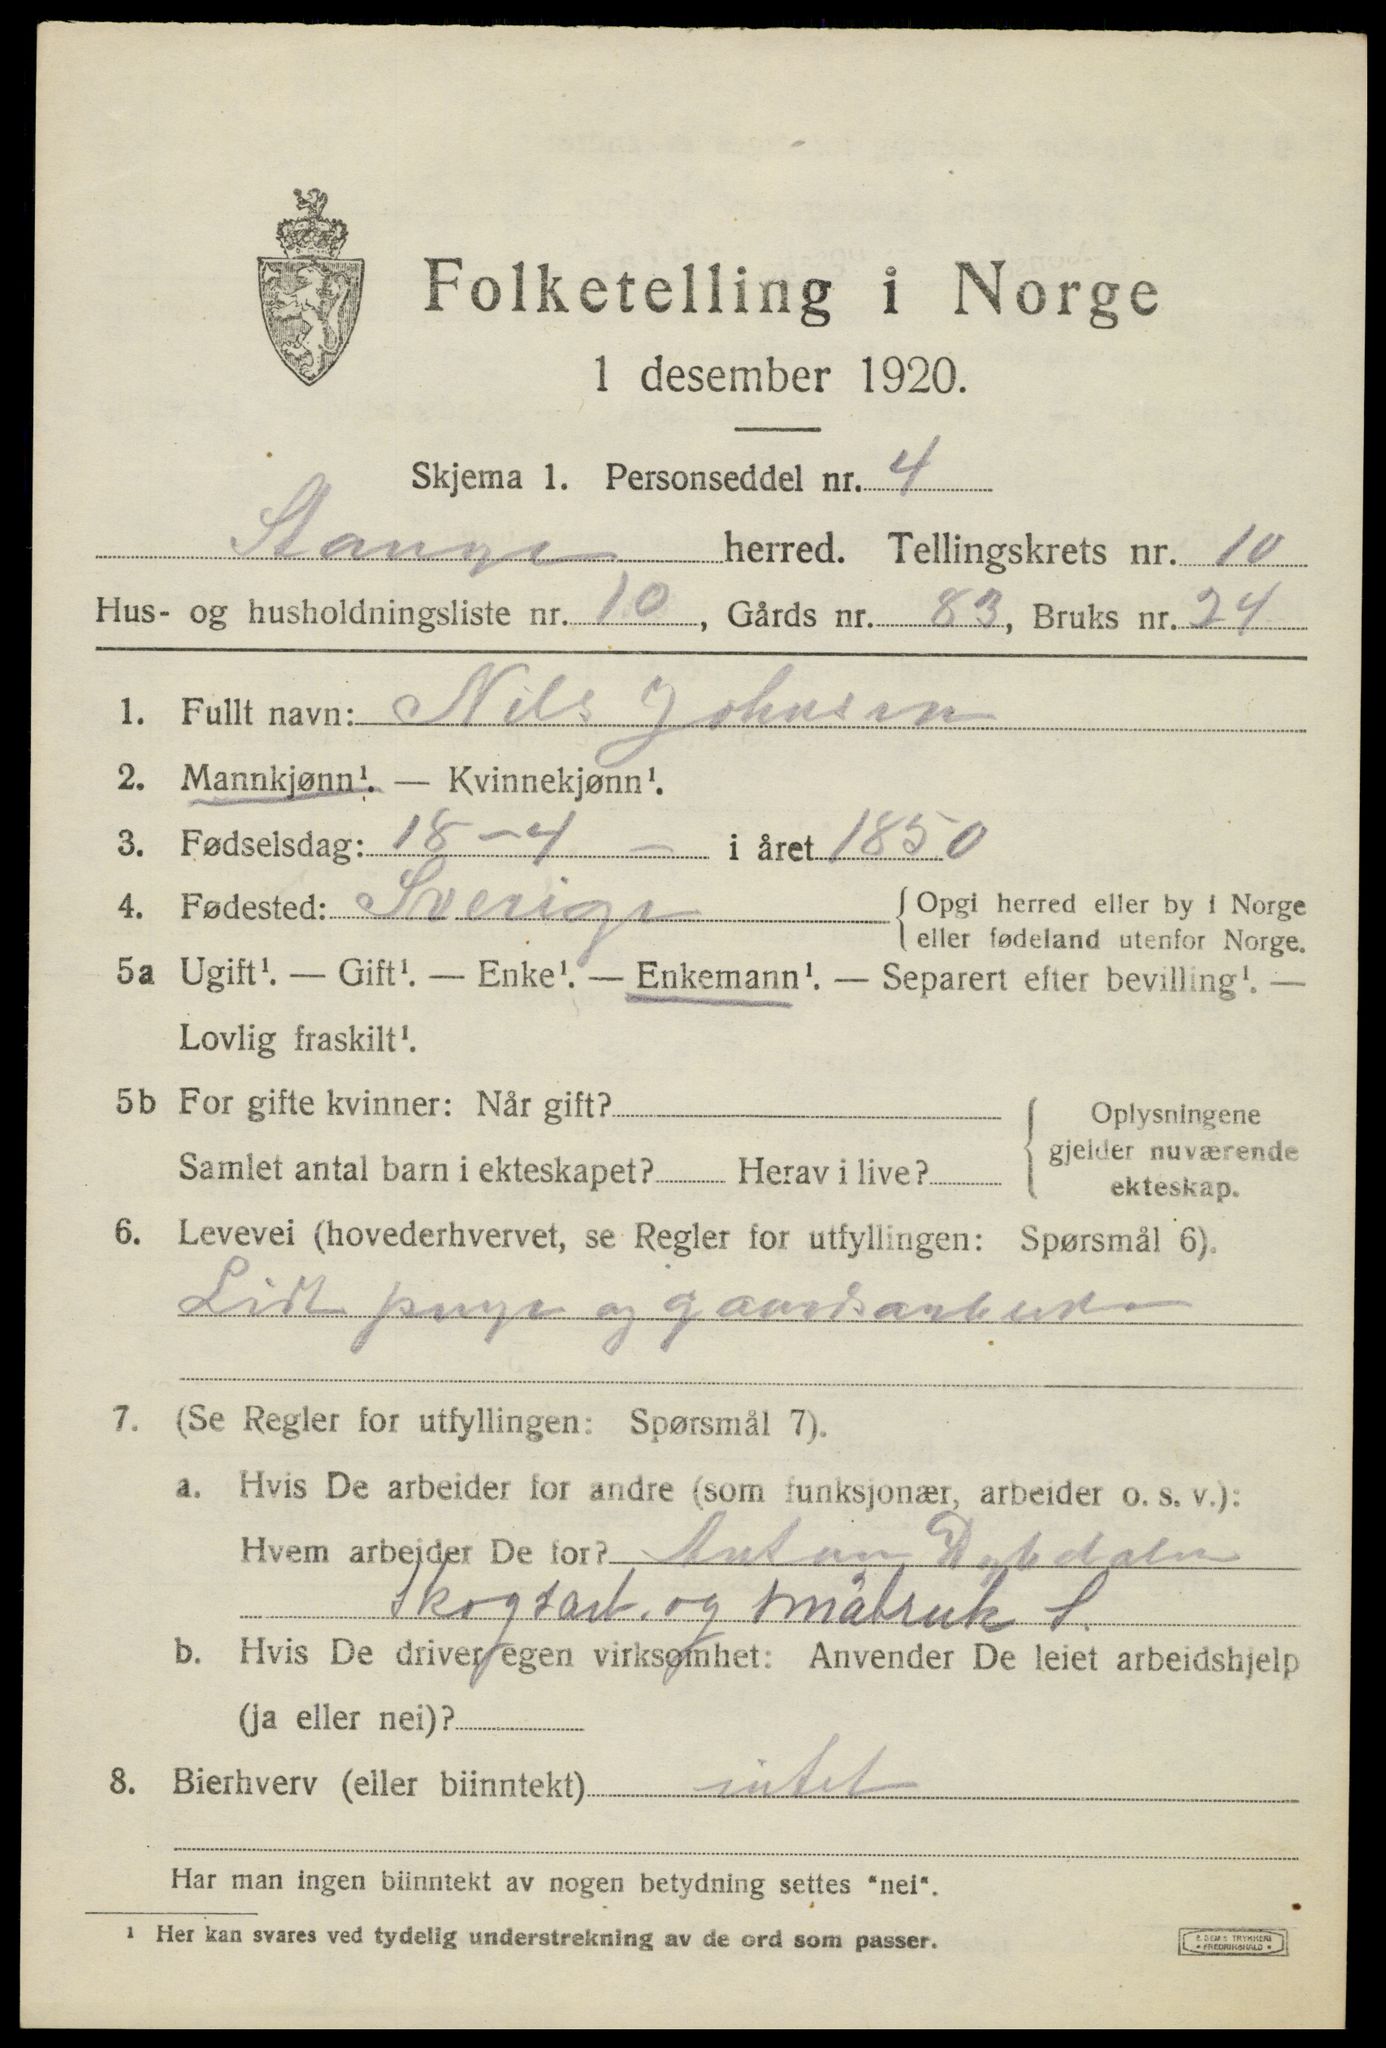 Folketelling i Norge
1 desember 1920.
Skjema 1. Personseddel nr. 4
Stange herred. Tellingskrets nr. 10
Hus- og husholdningsliste nr. 10, Gårds nr. 83, Bruks nr. 24
1. Fullt navn: Nils Johnsen
2. Mannkjønn¹. — Kvinnekjønn¹.
3. Fødselsdag: 18-4 - i året 1850
4. Fødested: Sverige { Opgi herred eller by i Norge
eller fødeland utenfor Norge.
5a Ugift¹. — Gift¹. — Enke¹. — Enkemann¹. — Separert efter bevilling¹. —
Lovlig fraskilt¹.
5b For gifte kvinner: Når gift?
Samlet antal barn i ekteskapet? Herav i live?
Oplysningene
gjelder nuværende
ekteskap.
6. Levevei (hovederhvervet, se Regler for utfyllingen: Spørsmål 6).
Lidt penge og gaardsarbeide
7. (Se Regler for utfyllingen: Spørsmål 7).
a. Hvis De arbeider for andre (som funksjonær, arbeider o. s. v.):
Hvem arbeider De for? Anton Dybdalen
Skogsarb. og småbruk S.
b. Hvis De driver egen virksomhet: Anvender De leiet arbeidshjelp
(ja eller nei)?
8. Bierhverv (eller biinntekt) intet
Har man ingen biinntekt av nogen betydning settes "nei".
¹ Her kan svares ved tydelig understrekning av de ord som passer.
E. SEM'S TRYKKERI
* FREDRIKSHALD *